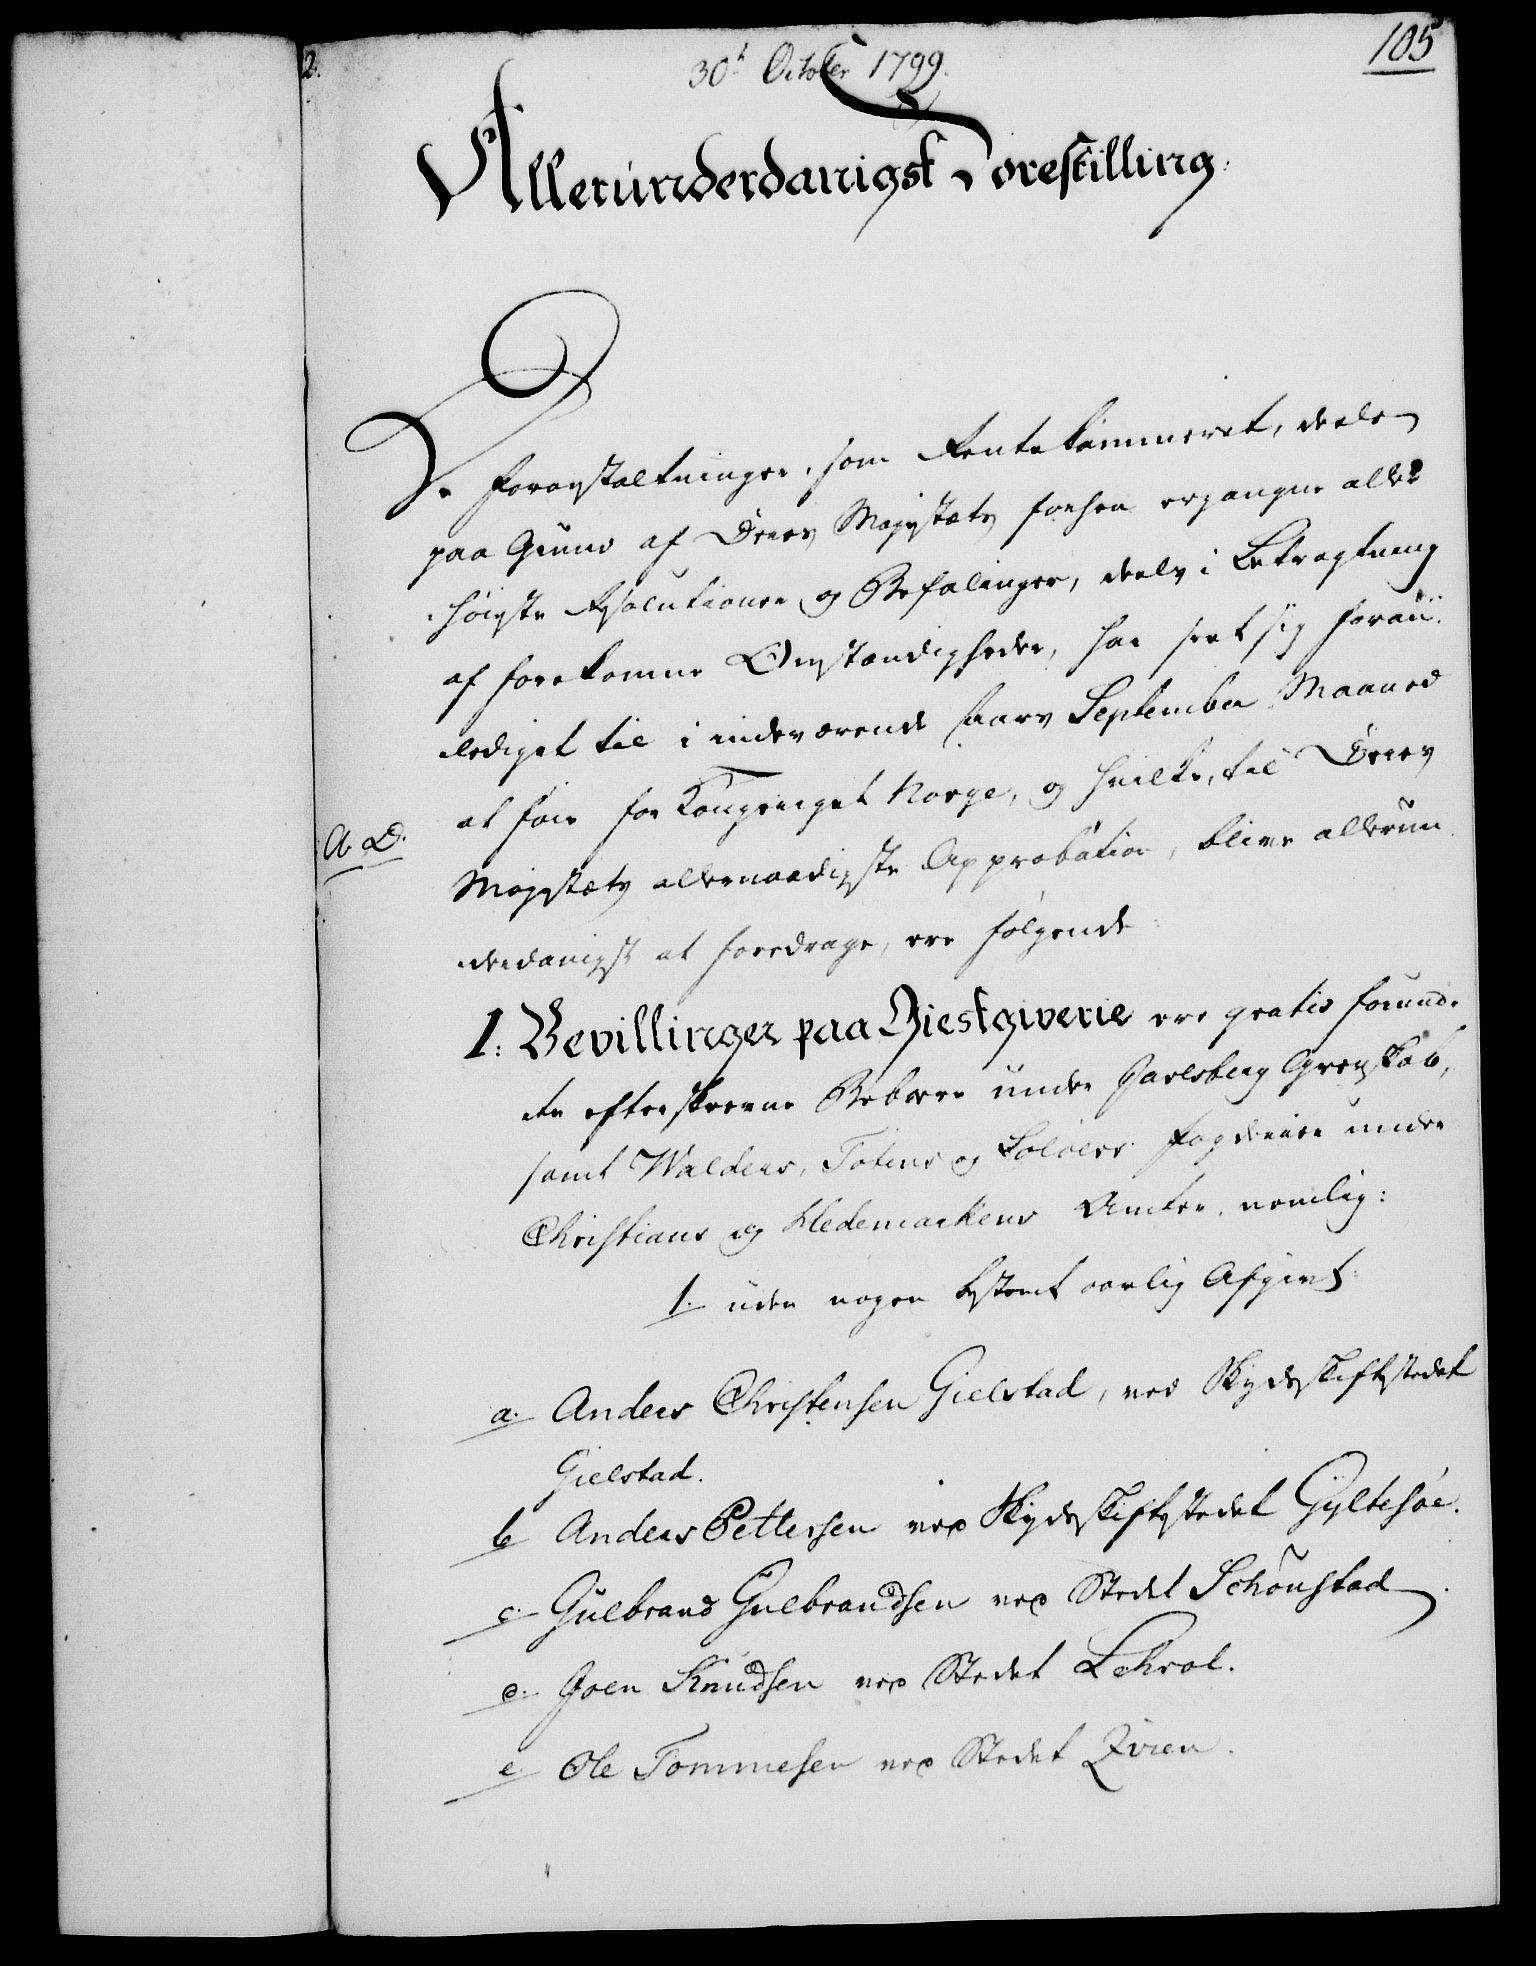 105
2.
30t October 1799.
Allerunderdanigst Forestilling.
De Foranstaltninger, som Rentekammeret, deels
paa Grund af Deres Majestæts forhen ergangne aller
høieste Resolutioner og Befalinger, deels i Betragtning
af forekomne Omstændigheder, har seet sig foran
lediget til i indeværende Aars September Maaned
at føie for Kongeriget Norge, og hvilke, til Deres
A. D.
Majestæts allernaadigste Approbation, blive allerun
derdanigst at foredrage, ere følgende:
1. Bevillinger paa Giestgiverie ere gratis forund
te efterskrevne Beboere under Jarlsberg Grevskab,
samt Walders, Totens og Soløers Fogderier under
Christians og Hedemarkens Amter, nemlig:
1. uden nogen bestemt aarlig Afgivt:
a. Anders Christensen Gielstad, ved Skydsskiftestedet
Gielstad.
b Anders Pettersen ved Skydsskiftestedet Gyltesøe.
c. Gulbrand Gulbrandsen ved Stedet Schønstad.
d. Joen Knudsen ved Stedet Lekrol.
e. Ole Tommesen ved Stedet Qvien.